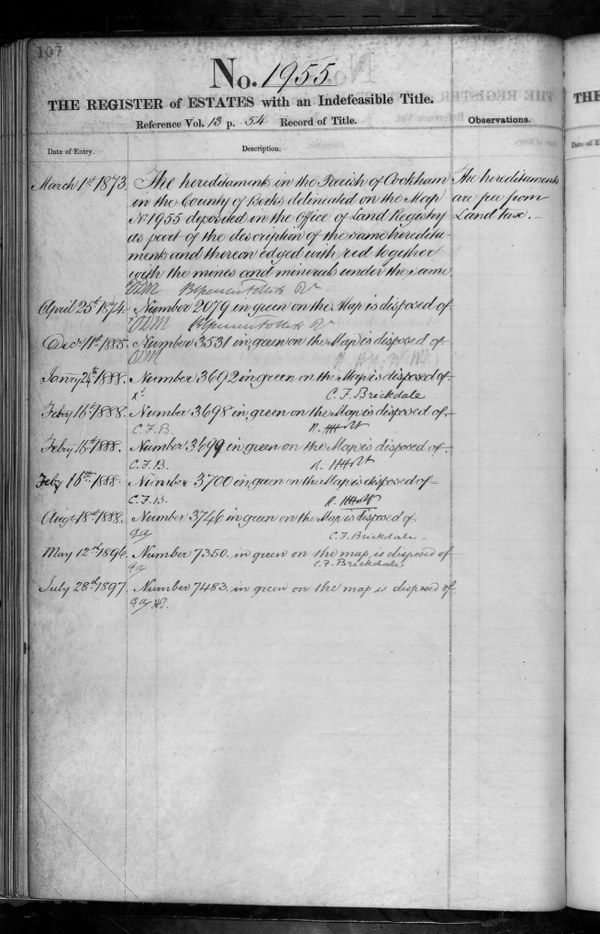 107
No. 1955
THE REGISTER of ESTATES with an Indefeasible Title.
Reference Vol. 13 p. 54 Record of Title.
Observations.
Date of Entry.
Description.
March 1st 1873. The hereditaments in the Parish of Cookham
in the County of Berks delineated on the Map
No 1955 deposited in the Office of Land Registry
as part of the description of the same heredita-
ments and thereon edged with red together
with the mines and minerals under the same
The hereditaments
are free from
Land tax. -
April 25th 1874. Number 2079 in green on the Map is disposed of
Decr 11th 1885. Number 3531 in green on the Map is disposed of
Janry 24th 1888. Number 3692 in green on the Map is disposed of.
C. F. Brickdale
Febry 16th 1888. Number 3698 in green on the Map is disposed of.
C. F. B. R. H. Holt
Febry 16th 1888. Number 3699 in green on the Map is disposed of.
C. F. B. R. H. Holt
Feby 16th 1888. Number 3700 in green on the Map is disposed of
C. F. B. R. H. Holt
Augt 18th 1888. Number 3746 in green on the Map is disposed of
C. F. Brickdale.
May 12th 1896. Number 7350. in green on the map is disposed of
C. F. Brickdale
July 28th 1897. Number 7483. in green on the map is disposed of
THE
Date of E